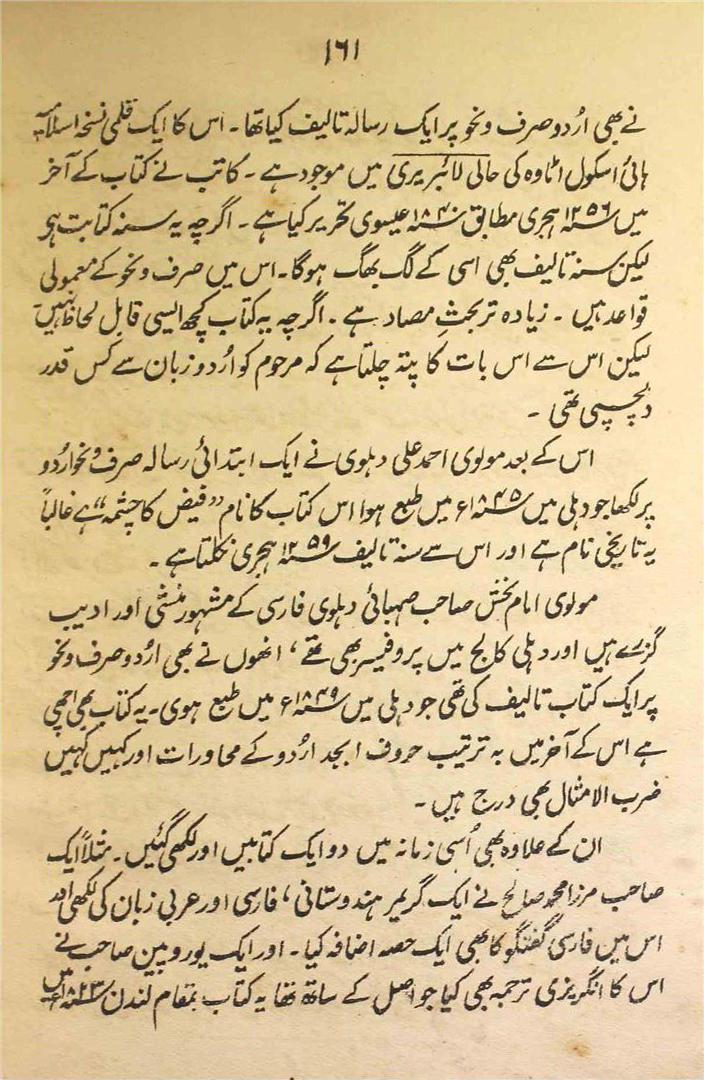 ۱۶۱
نے بھی اردو صرف و نحو پر ایک رسالہ تالیف کیا تھا۔ اس کا ایک قلمی نسخہ اسلامیہ
ہائی اسکول اٹاوہ کی حالی لائبریری میں موجود ہے۔ کاتب نے کتاب کے آخر
میں ۱۲۵۶ سنہ ہجری مطابق ۱۸۴۰ سنہ عیسوی تحریر کیا ہے۔ اگرچہ یہ سنہ کتابت ہے
لیکن سنہ تالیف بھی اسی کے لگ بھگ ہوگا۔ اس میں صرف و نحو کے معمولی
قواعد ہیں۔ زیادہ تر بحثِ مصادر ہے۔ اگرچہ یہ کتاب کچھ ایسی قابل لحاظ نہیں
لیکن اس سے اس بات کا پتہ چلتا ہے کہ مرحوم کو اُردو زبان سے کس قدر
دلچسپی تھی۔
اس کے بعد مولوی احمد علی دہلوی نے ایک ابتدائی رسالہ صرف و نحو اُردو
پر لکھا جو دہلی میں ۱۸۴۵ سنہ ء میں طبع ہوا اس کتاب کا نام ”فیض کا چشمہ“ ہے غالباً
یہ تاریخی نام ہے اور اس سے سنہ تالیف ۱۲۵۹ سنہ ہجری نکلتا ہے۔
مولوی امام بخش صاحب صہبائی دہلوی فارسی کے مشہور منشی اور ادیب
گزرے ہیں اور دہلی کالج میں پروفیسر بھی تھے، انھوں نے بھی اردو صرف و نحو
پر ایک کتاب تالیف کی تھی جو دہلی میں ۱۸۴۹ سنہ ء میں طبع ہوی۔ یہ کتاب بھی اچھی
ہے اس کے آخر میں بہ ترتیب حروف ابجد اردو کے محاورات اور کہیں کہیں
ضرب الامثال بھی درج ہیں۔
ان کے علاوہ بھی اُسی زمانہ میں دو ایک کتابیں اور لکھی گئیں۔ مثلاً ایک
صاحب مرزا محمد صالح نے ایک گریمر ہندوستانی، فارسی اور عربی زبان کی لکھی اور
اس میں فارسی گفتگو کا بھی ایک حصہ اضافہ کیا۔ اور ایک یوروپین صاحب نے
اس کا انگریزی ترجمہ بھی کیا جو اصل کے ساتھ تھا یہ کتاب بمقام لندن ۱۸۲۳ سنہ ء میں